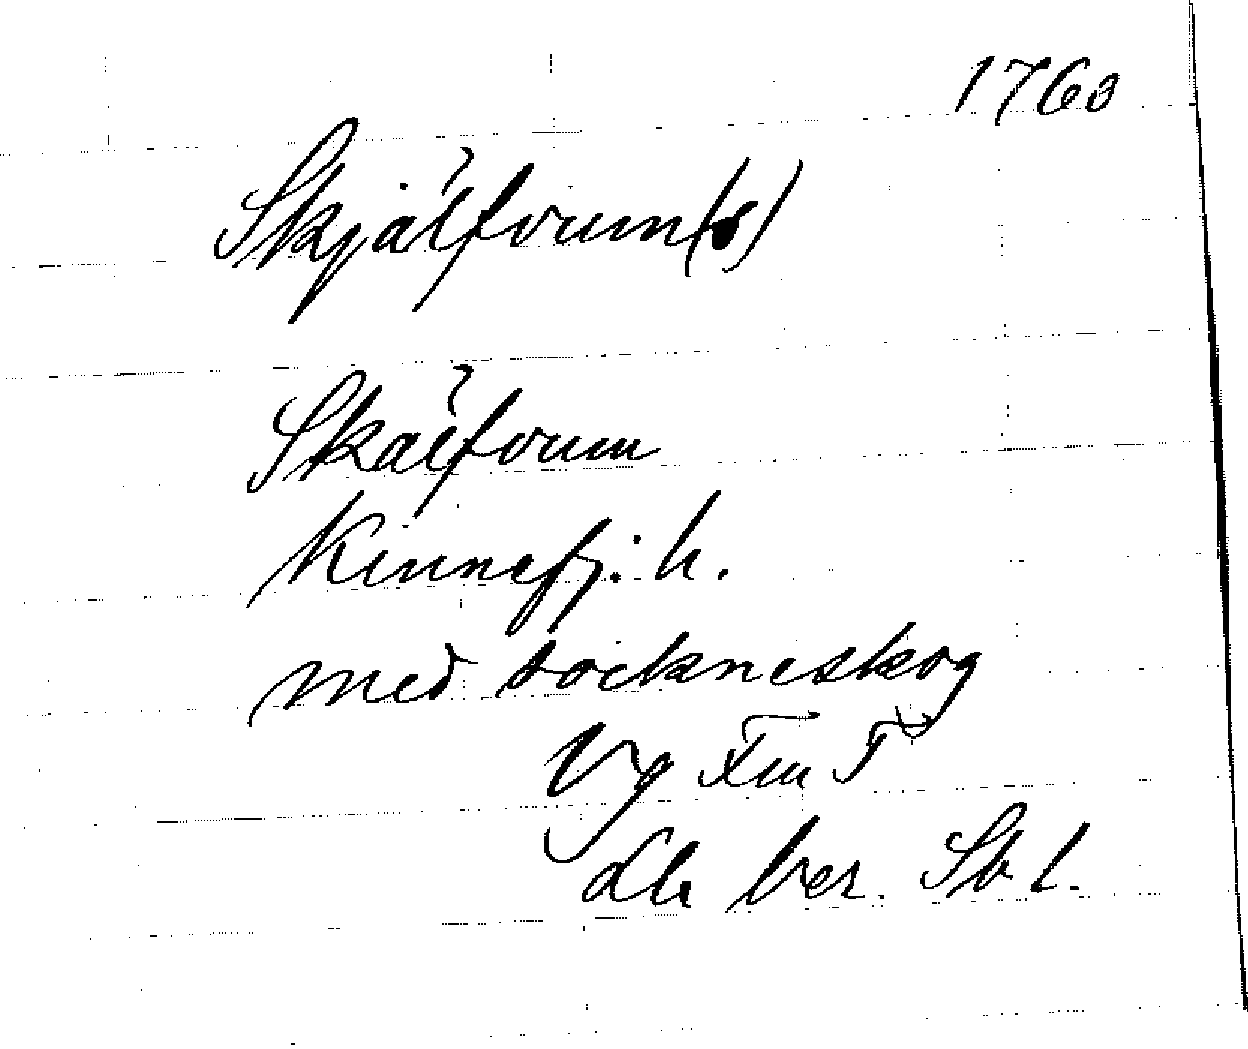 1763
Skjälforum(s)
Skälforum
Kinnefj. h.
med sockneskog
Vg
ver. Sb l.